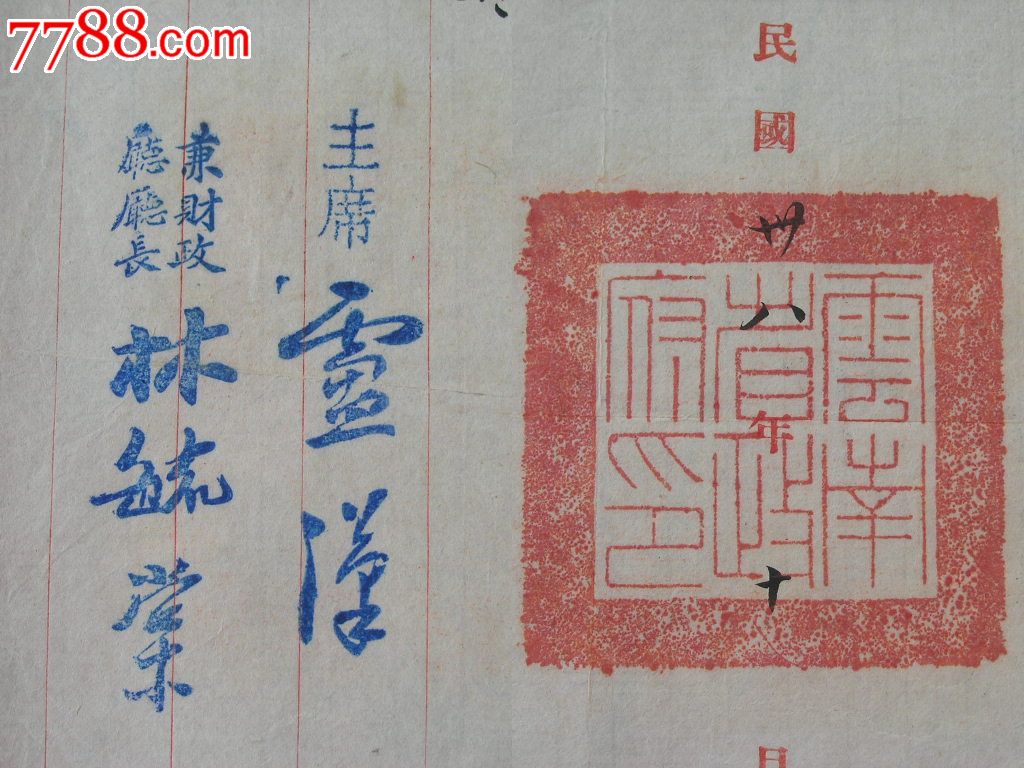 7788.com
民國卅八年十日
雲南
省政
府印
主席盧漢
兼財政
廳廳長
林毓棠